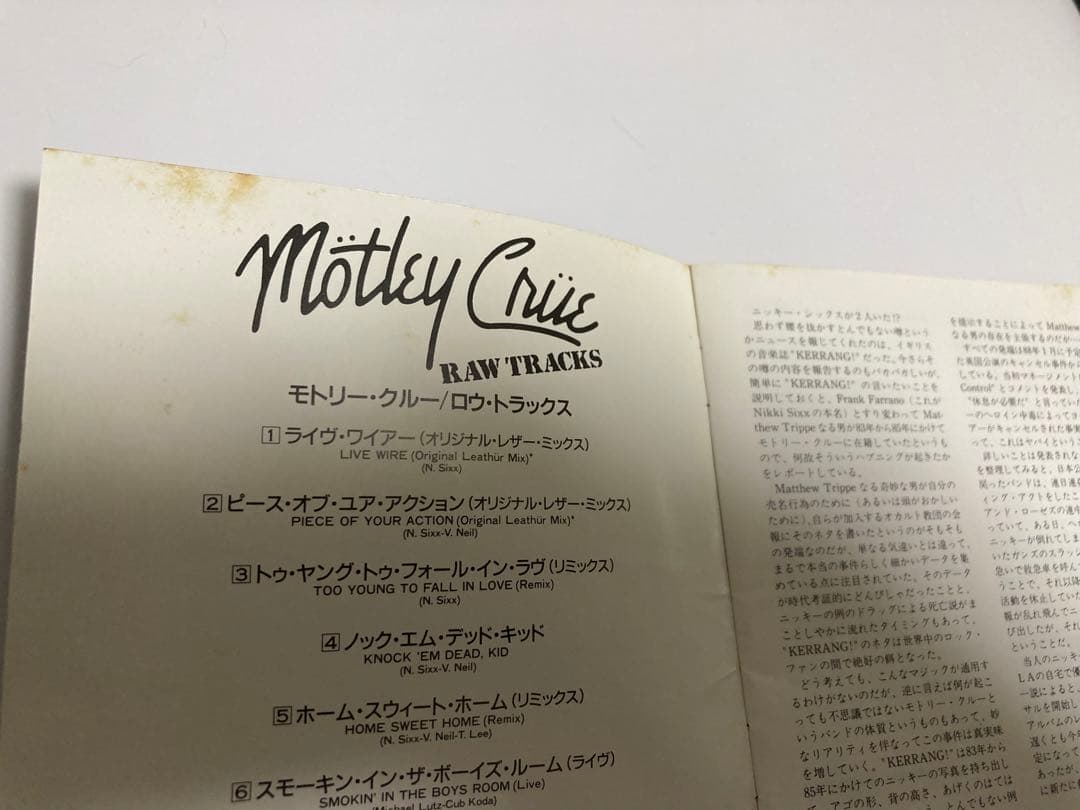 Mötley Crüe
RAW TRACKS
モトリー・クルー/ロウ・トラックス
1 ライヴ・ワイアー(オリジナル・レザー・ミックス)
LIVE WIRE (Original Leathür Mix)*
(N. Sixx)
2 ピース・オブ・ユア・アクション(オリジナル・レザー・ミックス)
PIECE OF YOUR ACTION (Original Leathür Mix)*
(N. Sixx-V. Neil)
3 トゥ・ヤング・トゥ・フォール・イン・ラヴ(リミックス)
TOO YOUNG TO FALL IN LOVE (Remix)
(N. Sixx)
4 ノック・エム・デッド・キッド
KNOCK 'EM DEAD, KID
(N. Sixx-V. Neil)
5 ホーム・スウィート・ホーム(リミックス)
HOME SWEET HOME (Remix)
(N. Sixx-V. Neil-T. Lee)
6 スモーキン・イン・ザ・ボーイズ・ルーム(ライヴ)
SMOKIN' IN THE BOYS ROOM (Live)
(Michael Lutz-Cub Koda)
ニッキー・シックスが2人いた!?
思わず腰を抜かすとんでもない噂という
かニュースを報じてくれたのは、イギリス
の音楽誌"KERRANG!"だった。今さらそ
の噂の内容を報告するのもバカバカしいが、
簡単に"KERRANG!"の言いたいことを
説明しておくと、Frank Farrano (これが
Nikki Sixxの本名)とすり変わって Mat-
thew Trippeなる男が83年から85年にかけて
モトリー・クルーに在籍していたというも
ので、何故そういうハプニングが起きたか
をレポートしている。
Matthew Trippeなる奇妙な男が自分の
売名行為のために(あるいは頭がおかしい
ために)、自らが加入するオカルト教団の会
報にそのネタを書いたというのがそもそも
の発端なのだが、単なる気違いとは違って、
まるで本当の事件らしく細かいデータを集
めている点に注目されていた。そのデータ
が時代考証的にどんぴしゃだったことと、
ニッキーの例のドラッグによる死亡説がま
ことしやかに流れたタイミングもあって、
"KERRANG!"のネタは世界中のロック・
ファンの間で絶好の餌となった。
どう考えても、こんなマジックが通用す
るわけがないのだが、逆に言えば何が起こ
っても不思議ではないモトリー・クルーと
いうバンドの体質というものもあって、妙
なリアリティを伴なってこの事件は真実味
を増していく。"KERRANG!"は83年から
85年にかけてのニッキーの写真を持ち出し
て、アゴの形、背の高さ、あげくのはては
とんでもない例
を提示することによって Matthew
なる男の存在を主張するのだが…
すべての発端は88年1月に予定
た英国公演のキャンセル事件か
している。当初マネージメント
Control"とコメントを発表し、
"休息が必要だ"と言ってい
ーのヘロイン中毒によってヨ
アーがキャンセルされた事実
って、これはヤバイという
詳しいことは発表されな
を整理してみると、日本公
戻ったバンドは、連日連
ィング・アクトをしたこ
アンド・ローゼズの連中
っていて、ある日、ヘ
ニッキーが倒れてしま
いたガンズのスラッシ
急いで救急車を呼んで
うことで、それ以降
活動を休止していた
報が乱れ飛んでニ
び出したが、それ
ということだ。
当人のニッキー
LAの自宅で優
一説によると、
サルを開始し
アルバムのレ
遅くとも今年
定になって
あったが、
に新たに